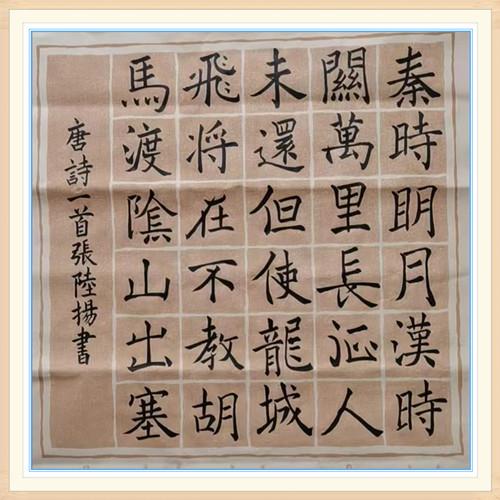 秦時明月漢時
關萬里長征人
未還但使龍城
飛将在不教胡
馬渡陰山出塞
唐詩一首張陸揚書